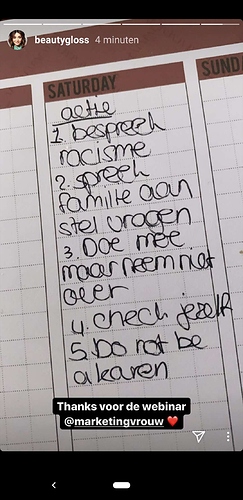 beautygloss 4 minuten
SATURDAY
SUND
actie
1. bespreek
racisme
2. spreek
familie aan
stel vragen
3. Doe mee
maar neem niet
over
4. check jezelf
5. Do not be
a karen
Thanks voor de webinar
@marketingvrouw ❤️